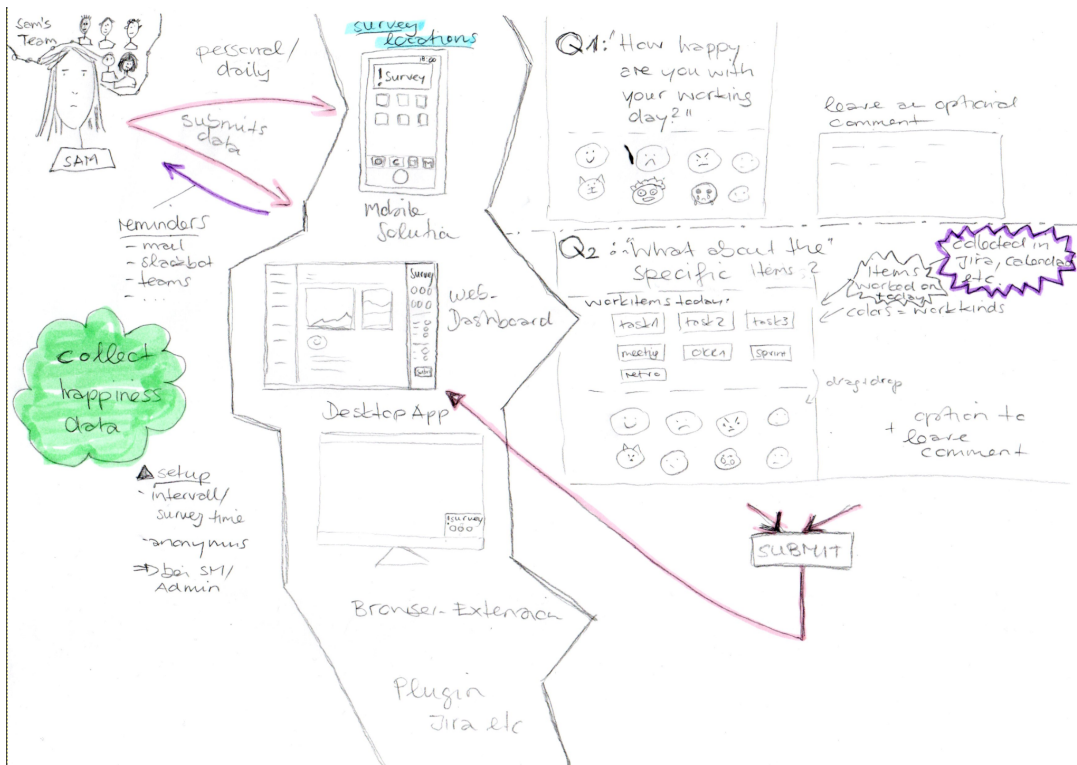 Sam's
Team
SAM
personal/
daily
submits
data
reminders
- mail
- slackbot
- teams
- ...
collect
happiness
data
setup
- intervall/
survey time
- anonymus
=> bei SM/
Admin
survey
locations
18:00
! Survey
Mobile
Solution
Survey
Web-
Dashboard
Desktop App
! survey
Browser-Extension
Plugin
Jira etc
Q1: "How happy
are you with
your working
day?"
leave an optional
comment
Q2: "What about the"
specific items?
workitems today:
task1 task2 task3
meeting sprint
retro
Items
worked on
today
collected in
Jira, Calendar
etc.
colors = workkinds
drag+drop
+ option to
leave
comment
SUBMIT